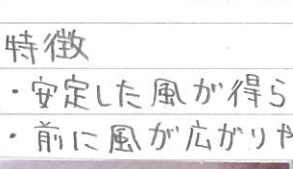 特徴
・安定した風が得ら
・前に風が広がりや